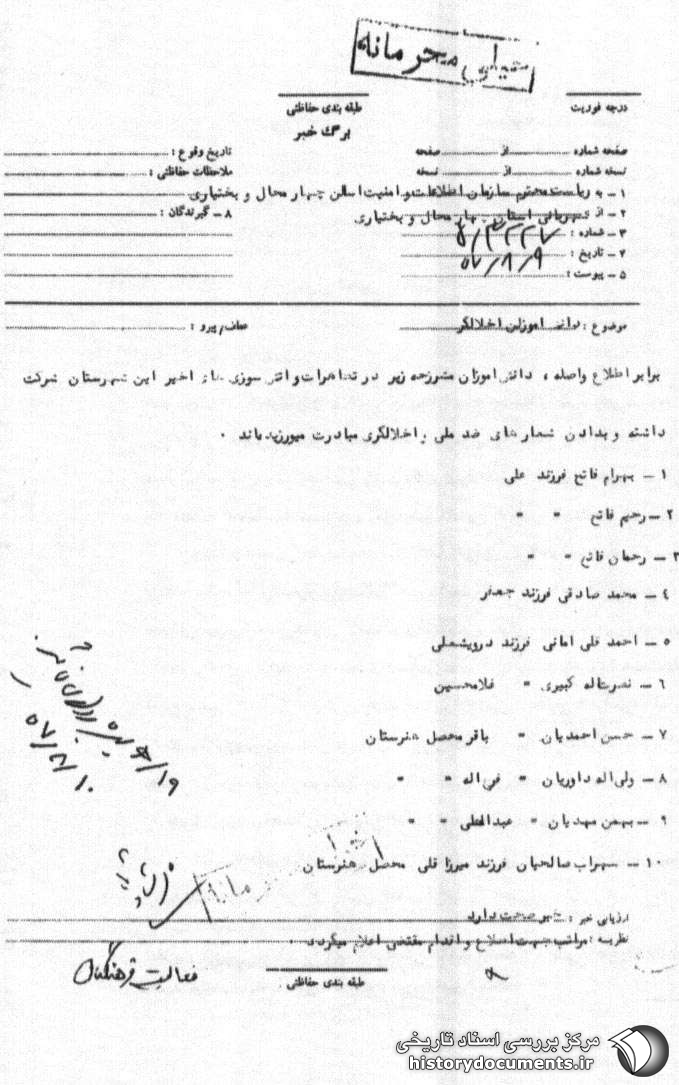 خیلی محرمانه
درجه فوریت
طبقه بندی حفاظتی
برگ خبر
صفحه شماره از صفحه
تاریخ وقوع :
نسخه شماره از نسخه
ملاحظات حفاظتی :
۱ – به ریاست محترم سازمان اطلاعات و امنیت استان چهار محال و بختیاری
۲ – از شهربانی استان چهار محال و بختیاری
۸ – گیرندگان :
۳ – شماره :
۴ – تاریخ : ۵۷/۸/۹
۵ – پیوست :
موضوع : دانش اموزان اخلالگر
عطف/پیرو :
برابر اطلاع واصله ، دانش اموزان مشروحه زیر در تظاهرات و اتش سوزی های اخیر این شهرستان شرکت
داشته و بدادن شعار های ضد ملی و اخلالگری مبادرت میورزیده‌اند .
۱ – بهرام فاتح فرزند علی
۲ – رحیم فاتح " "
۳ – رحمان فاتح " "
٤ – محمد صادقی فرزند جعفر
۵ – احمد قلی امانی فرزند درویشعلی
۶ – نصرت‌اله کبیری " غلامحسین
۷ – حسن احمدیان " باقر محصل هنرستان
۸ – ولی‌اله داوریان " " "
۹ – بهمن مهدیان " " "
۱۰ – سهراب صالحیان فرزند میرزا قلی محصل هنرستان
۵۷/۸/۱۰
ارزیابی خبر : خبر صحت دارد
نظریه : مراتب جهت اطلاع و اقدام مقتضی اعلام میگردد .
طبقه بندی حفاظتی
فعالیت فرهنگیان
مرکز بررسی اسناد تاریخی
historydocuments.ir